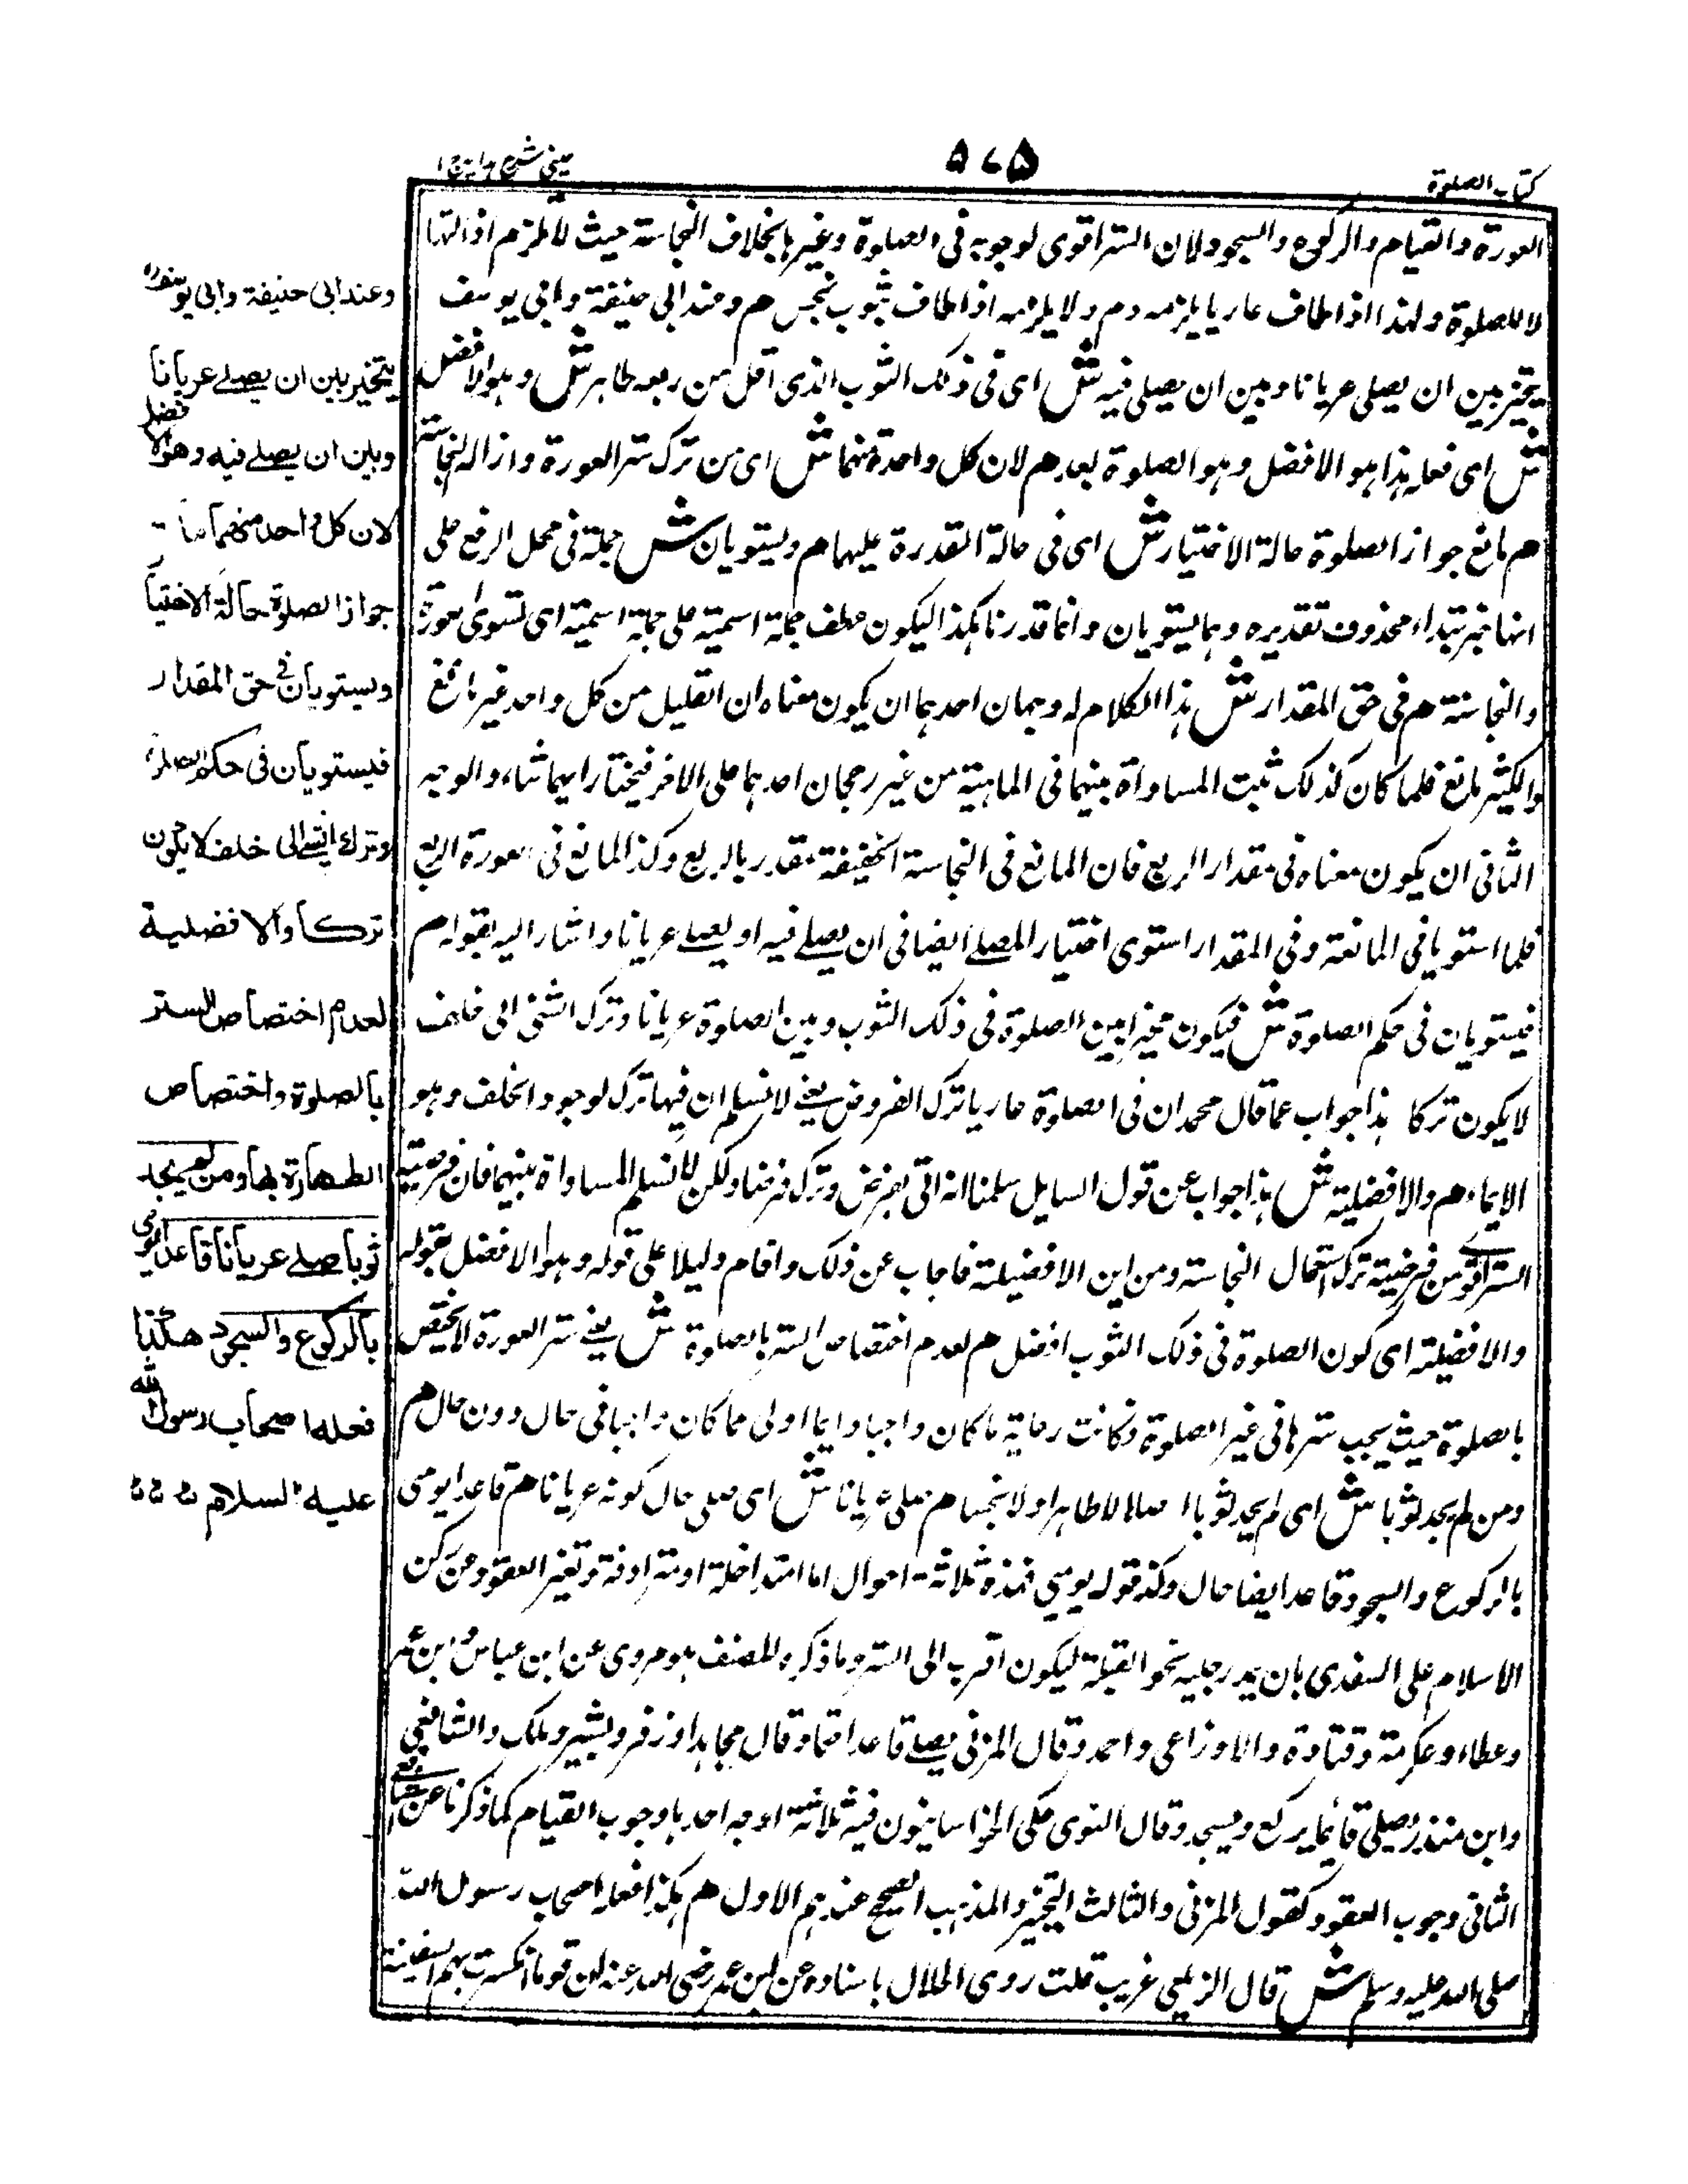 كتاب الصلوة
۵۷۵
عینی شرح ہدایہ ج ۱
العورة والقيام والركوع والسجود ولان الستر اقوى لوجوبه فى الصلوة وغيرها بخلاف النجاسة حيث لا تلزم ازالتها
لا للصلوة ولهذا اذا طاف عاريا يلزمه دم ولا يلزمه اذا طاف بثوب نجس هم وعند ابى حنيفة وابى يوسف
يتخير بين ان يصلى عريانا وبين ان يصلى فيه ش اى فى ذلك الثوب الذى اقل من ربعه طاهر ش وهو الافضل
ش اى فعله هذا هو الافضل وهو الصلوة بعد هم لان كل واحدة منهما ش اى من ترك ستر العورة وازالة النجاسة
هم مانع جواز الصلوة حالة الاختيار ش اى فى حالة القدرة عليهما هم ويستويان ش جملة فى محل الرفع على
انها خبر مبتداء محذوف تقديره وهما يستويان وانما قدرنا هكذا ليكون عطف جملة اسمية على جملة اسمية اى تستوى العورة
والنجاسة هم فى حق المقدار ش هذا الكلام له وجهان احدهما ان يكون معناه ان القليل من كل واحد غير مانع
والكثير مانع فلما كان كذلك ثبت المساواة بينهما فى الماهية من غير رجحان احدهما على الاخر فيختار ايهما شاء والوجه
الثانى ان يكون معناه فى مقدار الربع فان المانع فى النجاسة الخفيفة مقدر بالربع وكذا المانع فى العورة الربع
فلما استويا فى المانعة وفى المقدار استوى اختيار المصلے ايضا فى ان يصلے فيه او يصلے عريانا واشار اليه بقوله هم
فيستويان فى حكم الصلوة ش فيكون مخيرا بين الصلوة فى ذلك الثوب وبين الصلوة عريانا وترك الشئ الى خلف
لا يكون تركا هذا جواب عما قال محمد ان فى الصلوة عاريا ترك الفروض يعنے لا نسلم ان فيها ترك لوجود الخلف وهو
الايماء هم والافضلية ش هذا جواب عن قول السايل سلمنا انه اتى بفرض وترك فرضا ولكن لا نسلم المساواة بينهما فان فرضية
الستر اقوے من فرضية ترك استعمال النجاسة ومن اين الافضيلة فاجاب عن ذلك واقام دليلا على قوله وهو الافضل بقوله
والافضلية اى كون الصلوة فى ذلك الثوب افضل هم لعدم اختصاص الستر بالصلوة ش يعنے ستر العورة لا يختص
بالصلوة حيث يجب سترها فى غير الصلوة فكانت رعاية ما كان واجبا دايما اولى مما كان واجبا فى حال دون حال هم
ومن لم يجد ثوبا ش اى لم يجد ثوبا اصلا لا طاهرا ولا نجسا هم صلى عريانا ش اى صلى حال كونه عريانا هم قاعدا يومى
بالركوع والسجود وقاعدا ايضا حال وكذا قوله يومى فهذه ثلاثة احوال اما متداخلة او مترادفة وتغير القعود عن ركن
الاسلام على السغدى بان يمد رجليه نحو القبلة ليكون اقرب الى الستر وما ذكره المصنف هو مروى عن ابن عباس وابن عمر
وعطاء وعكرمة وقتادة والاوزاعى واحمد وقال المزنى يصلے قاعدا حتما وقال مجاهد وزفر وبشير وملك والشافعى
وابن منذر يصلى قائما يركع ويسجد وقال النوى حكى الخراسانيون فيه ثلاثة اوجه احدها وجوب القيام كما ذكرنا عن الشافعے
الثانى وجوب القعود كقول المزنى والثالث التخيير والمذهب الصحيح عندهم الاول هم هكذا فعله اصحاب رسول الله
صلى الله عليه وسلم ش قال الزيلعى غريب قلت روى الخلال باسناده عن ابن عمر رضى الله عنه ان قوما انكسرت بهم السفينة
وعند ابى حنيفة وابى يوسف رح
يتخير بين ان يصلے عريانا
وبين ان يصلے فيه وهو الافضل
لان كل واحد منهما مانع
جواز الصلوة حالة الاختيار
ويستويان فى حق المقدار
فيستويان فى حكم الصلوة
وترك الشئ الى خلف لا يكون
تركا والافضلية
لعدم اختصاص الستر
بالصلوة واختصاص
الطهارة بها ومن لم يجد
ثوبا صلے عريانا قاعدا يومى
بالركوع والسجود هكذا
فعله اصحاب رسول الله
عليه السلام